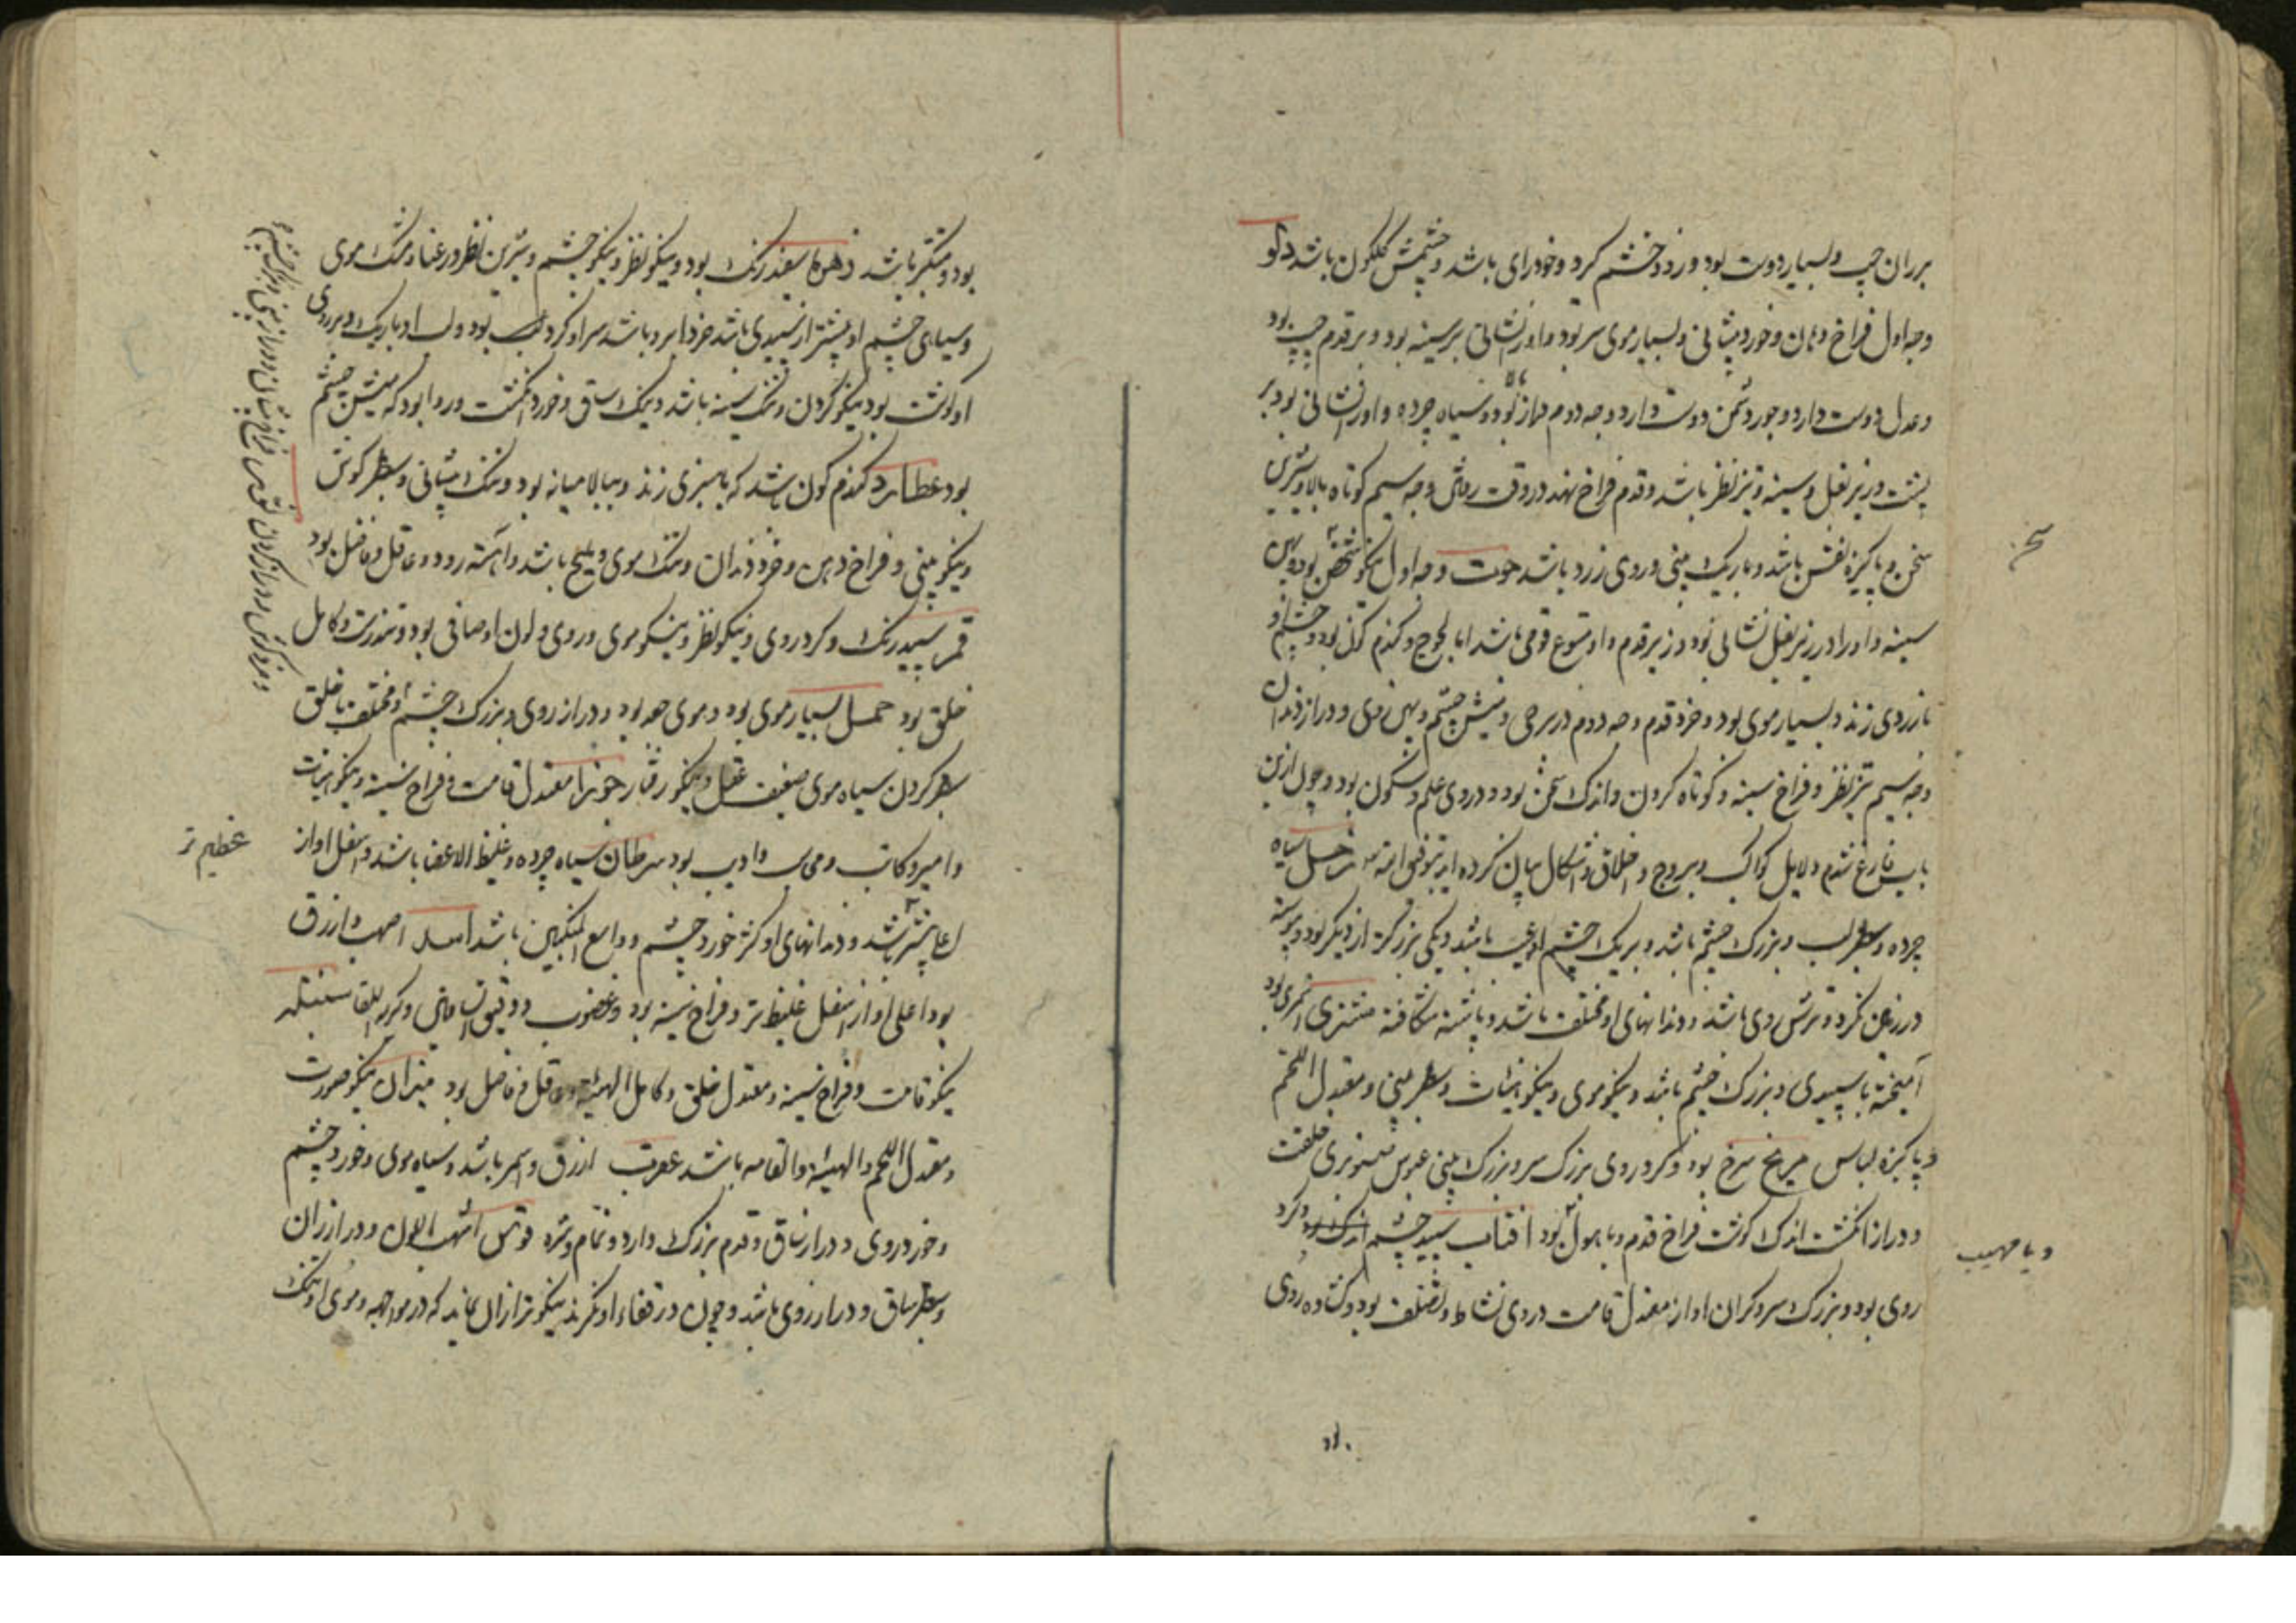 بر ران چپ و بسیار دوست بود و زود خشم کرد و خودرای باشد و چشمش کلکون باشد دلو
وجه اول فراخ دهان و خورد پیشانی و بسیار موی سر بود و اورا نشانی بر سینه بود و بر قدم چپ بود
و عدل دوست دارد و جور دشمن دوست دارد وجه دوم دراز بالا بود و سیاه چرده و اورا نشانی بود بر
پشت و زیر بغل و سینه و تیز نظر باشد و قدم فراخ نهد در وقت رفتن وجه سیم کوتاه بالا و شیرین
سخن و پاکیزه نفس باشد و باریک بینی و روی زرد باشد حوت وجه اول نیکو شخص بود و پهن
سینه و اورا در زیر بغل نشانی بود و زیر قدم و او قومی باشد اما لجوج و کندم کون بود و چشم او
بازردی زند و بسیار موی بود و خرد قدم وجه دوم در سرخی و میش چشم و پهن روی و دراز دندان
وجه سیم تیز نظر و فراخ سینه و کوتاه کردن و اندک سخن بود و در وی علم و سکون بود و چون ازین
باب فارغ شدم دلایل کواکب و بروج و اخلاق و اشکال بیان کرده اید بتوفیق الله زحل سیاه
چرده و سطبر لب و بزرک چشم باشد و بر یک چشم او عیب باشد و یکی بزرکتر از دیکر بود و پیوسته
در زمین نکرد و ترش روی باشد و دندانهای او مختلف باشد و پاشنه شکافته مشتری اسمری بود
آمیخته با سپیدی و بزرک چشم باشد و نیکو موی و نیکو هیئات و سطبر بینی و معتدل اللحم
و پاکیزه لباس مریخ سرخ بود و کرد روی بزرک سر و بزرک بینی عبوس خلقت
و دراز انکشت اندک کوشت فراخ قدم و با هول بود آفتاب سپید چشم اندک و کرد
روی بود و بزرک سر و کران اواز معتدل قامت در وی نشاط و تلطف بود و کشاده روی
سخن
و با مهیب
بود و متکبر باشد زهره سفید رنک بود و نیکو نظر و نیکو چشم و شیرین لفظ و رعنا و تنک موی
و سیاهی چشم او بیشتر از سپیدی باشد خرد ابرو باشد سر او کرد بود و لب او باریک و بر روی
او کوشت بود نیکو کردن و تنک سینه باشد و تنک ساق و خورد انکشت و روا بود که میش چشم
بود عطارد کندم کون باشد که با سبزی زند و ببالا میانه بود و تنک پیشانی و سطبر کوش
و نیکو بینی و فراخ دهن و خرد دندان و تنک موی و ملیح باشد و آهسته رود و عاقل و فاضل بود
قمر سپید رنک و کرد روی و نیکو نظر و نیکو موی و روی و لون او صافی بود و تندرست و کامل
خلق بود حمل بسیار موی بود و موی جعد بود و دراز روی و بزرک چشم و مختلف خلق
سطبر کردن سیاه موی ضعیف عقل و نیکو رفتار جوزا معتدل قامت و فراخ سینه و نیکو هیئات
و امیر و کاتب و ادیب بود سرطان سیاه چرده و غلیظ الاعضا باشد و اسفل او از
اعلی بیشتر باشد و دندانهای او کژ خورد چشم و واسع المنکبین باشد اسد اصهب و ازرق
بود اعلی او از اسفل غلیظ تر و فراخ سینه بود و غضوب و دقیق الساقین و کریه اللقا سنبله
نیکو قامت و فراخ سینه و معتدل خلق و کامل الهیئه و عاقل و فاضل بود میزان نیکو صورت
و معتدل اللحم و الهیئه و القامه باشد عقرب ازرق و اسمر باشد و سیاه موی و خورد چشم
و خورد روی و دراز ساق و قدم بزرک دارد و قوس اشهب اللون و دراز ران
و سطبر ساق و دراز روی باشد و چون در قفاء او نکرند نیکوتر ازان نماید که در مواجهه و موی او تنک
عظیم تر